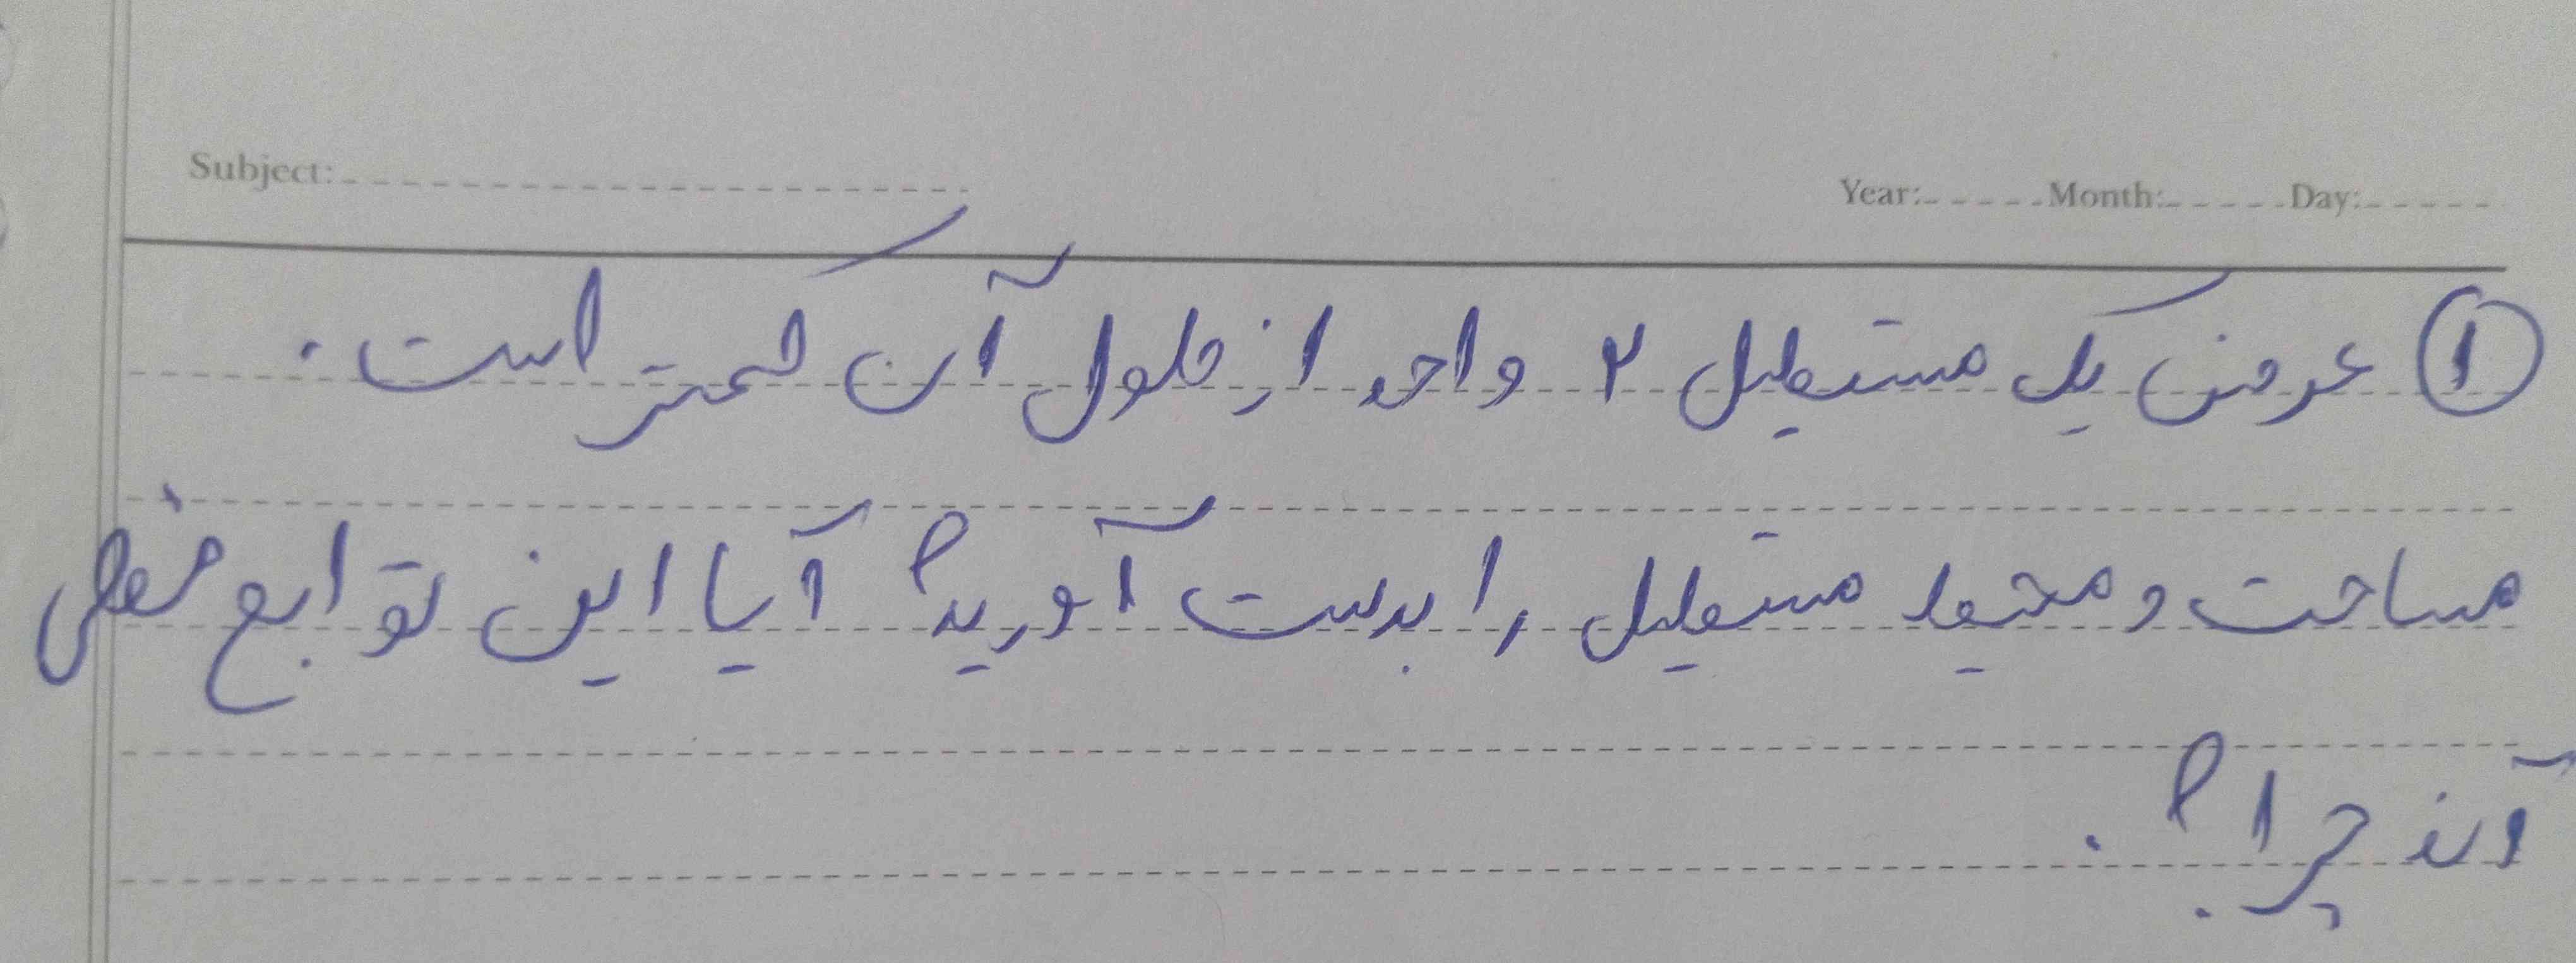 Subject: Year: Month: Day:
① عرض یک مستطیل ۲ واحد از طول آن کمتر است.
مساحت و محیط مستطیل را بدست آورید؟ آیا این توابع خطی
اند چرا؟.